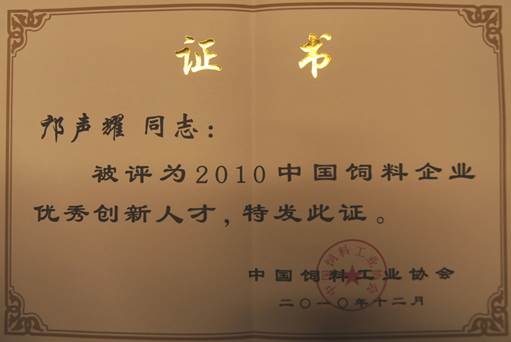 证 书
邝声耀 同志：
被评为2010中国饲料企业
优秀创新人才，特发此证。
中国饲料工业协会
二〇一〇年十二月